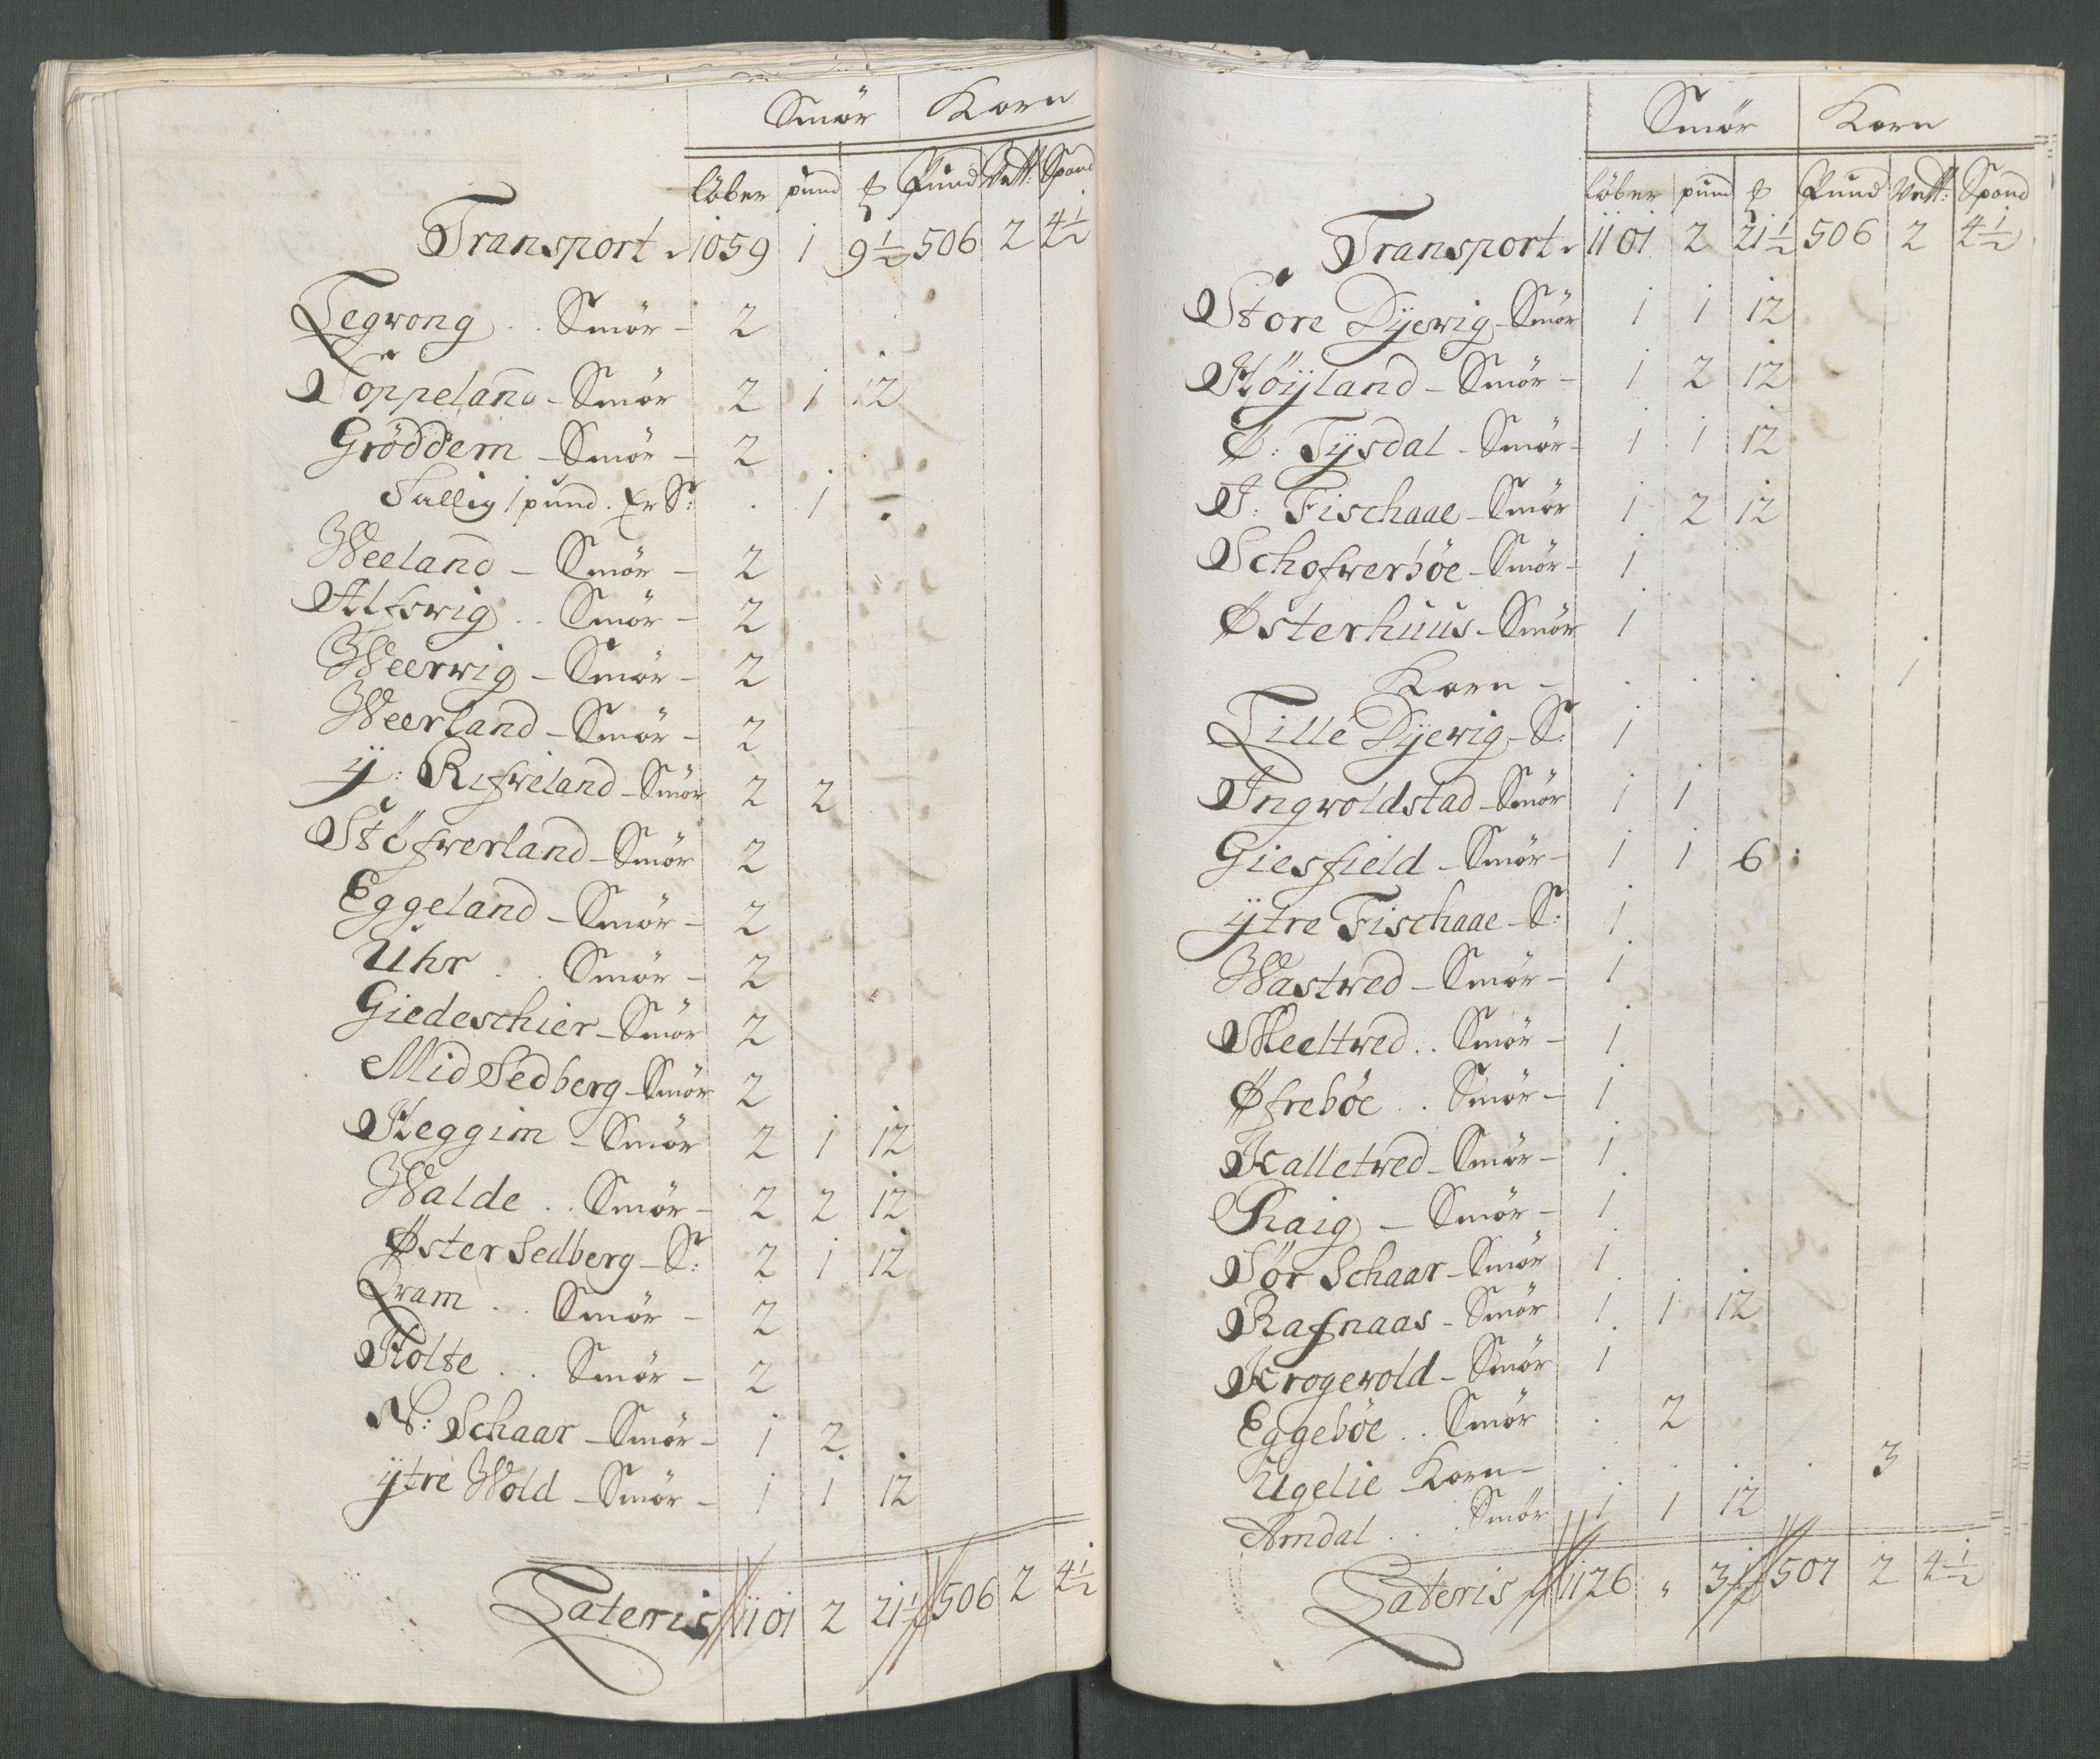 Smör Korn
löber pund ℔ Pund Vett: Spand
Transport 1059 1 9½ 506 2 4½
Tegwong .. Smör - 2
Töppeland - Smör 2 1 12
Gröddem - Smör - 2
Fallig 1 pund. S: . 1 -
Weeland - Smör - 2
Alfswig .. Smör - 2
Weerwig - Smör - 2
Weerland - Smör - 2
ÿ: Rifweland - Smör 2 2
Stöfwerland - Smör 2
Eggeland - Smör - 2
Uhr .. Smör - 2
Giedeschier - Smör 2
Mid Sedberg - Smör 2
Heggim - Smör 2 1 12
Walde .. Smör - 2 2 12
Øster Sedberg - S: 2 1 12
Qvam .. Smör - 2
Holte .. Smör - 2
N: Schaar - Smör - 1 2
ÿtre Wold - Smör - 1 1 12
Lateris 1101 2 21½ 506 2 4½
Smör Korn
löber pund ℔ Pund Vett: Spand
Transport 1101 2 21½ 506 2 4½
Store Dÿerwig - Smör 1 1 12
Höÿland - Smör - 1 2 12
Ø: Tÿsdal - Smör - 1 1 12
I: Fischaae - Smör 1 2 12
Schofwerböe - Smör - 1
Østerhuus - Smör 1
Korn - . . . . 1
Lille Dÿewig - S: 1
Ingwoldstad - Smör 1 1
Giesfield - Smör - 1 1 6
ÿtre Fischaae - S: 1
Wastwed - Smör - 1
Meeltwed .. Smör - 1
Øfreböe .. Smör - 1
Kalletwed - Smör - 1
Raig - Smör - 1
Sör Schaar - Smör 1
Rafnaas - Smör 1 1 12
Krogewold - Smör 1
Eggeböe .. Smör . 2
Ugelie Korn - . . . . 3
Amdal .. Smör 1 1 12
Lateris 1126 " 3½ 507 2 4½